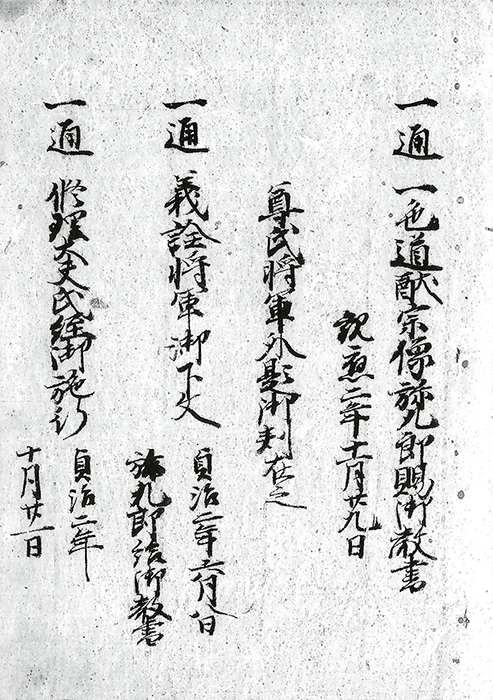 一通 一色道猷宗像弥九郎賜御教書
観応二年十二月廿九日
尊氏将軍外題御判在之
一通 義詮将軍御下文
貞治二年六月八日
弥九郎給御教書
一通 修理大夫氏経御施行
貞治二年
十月廿一日